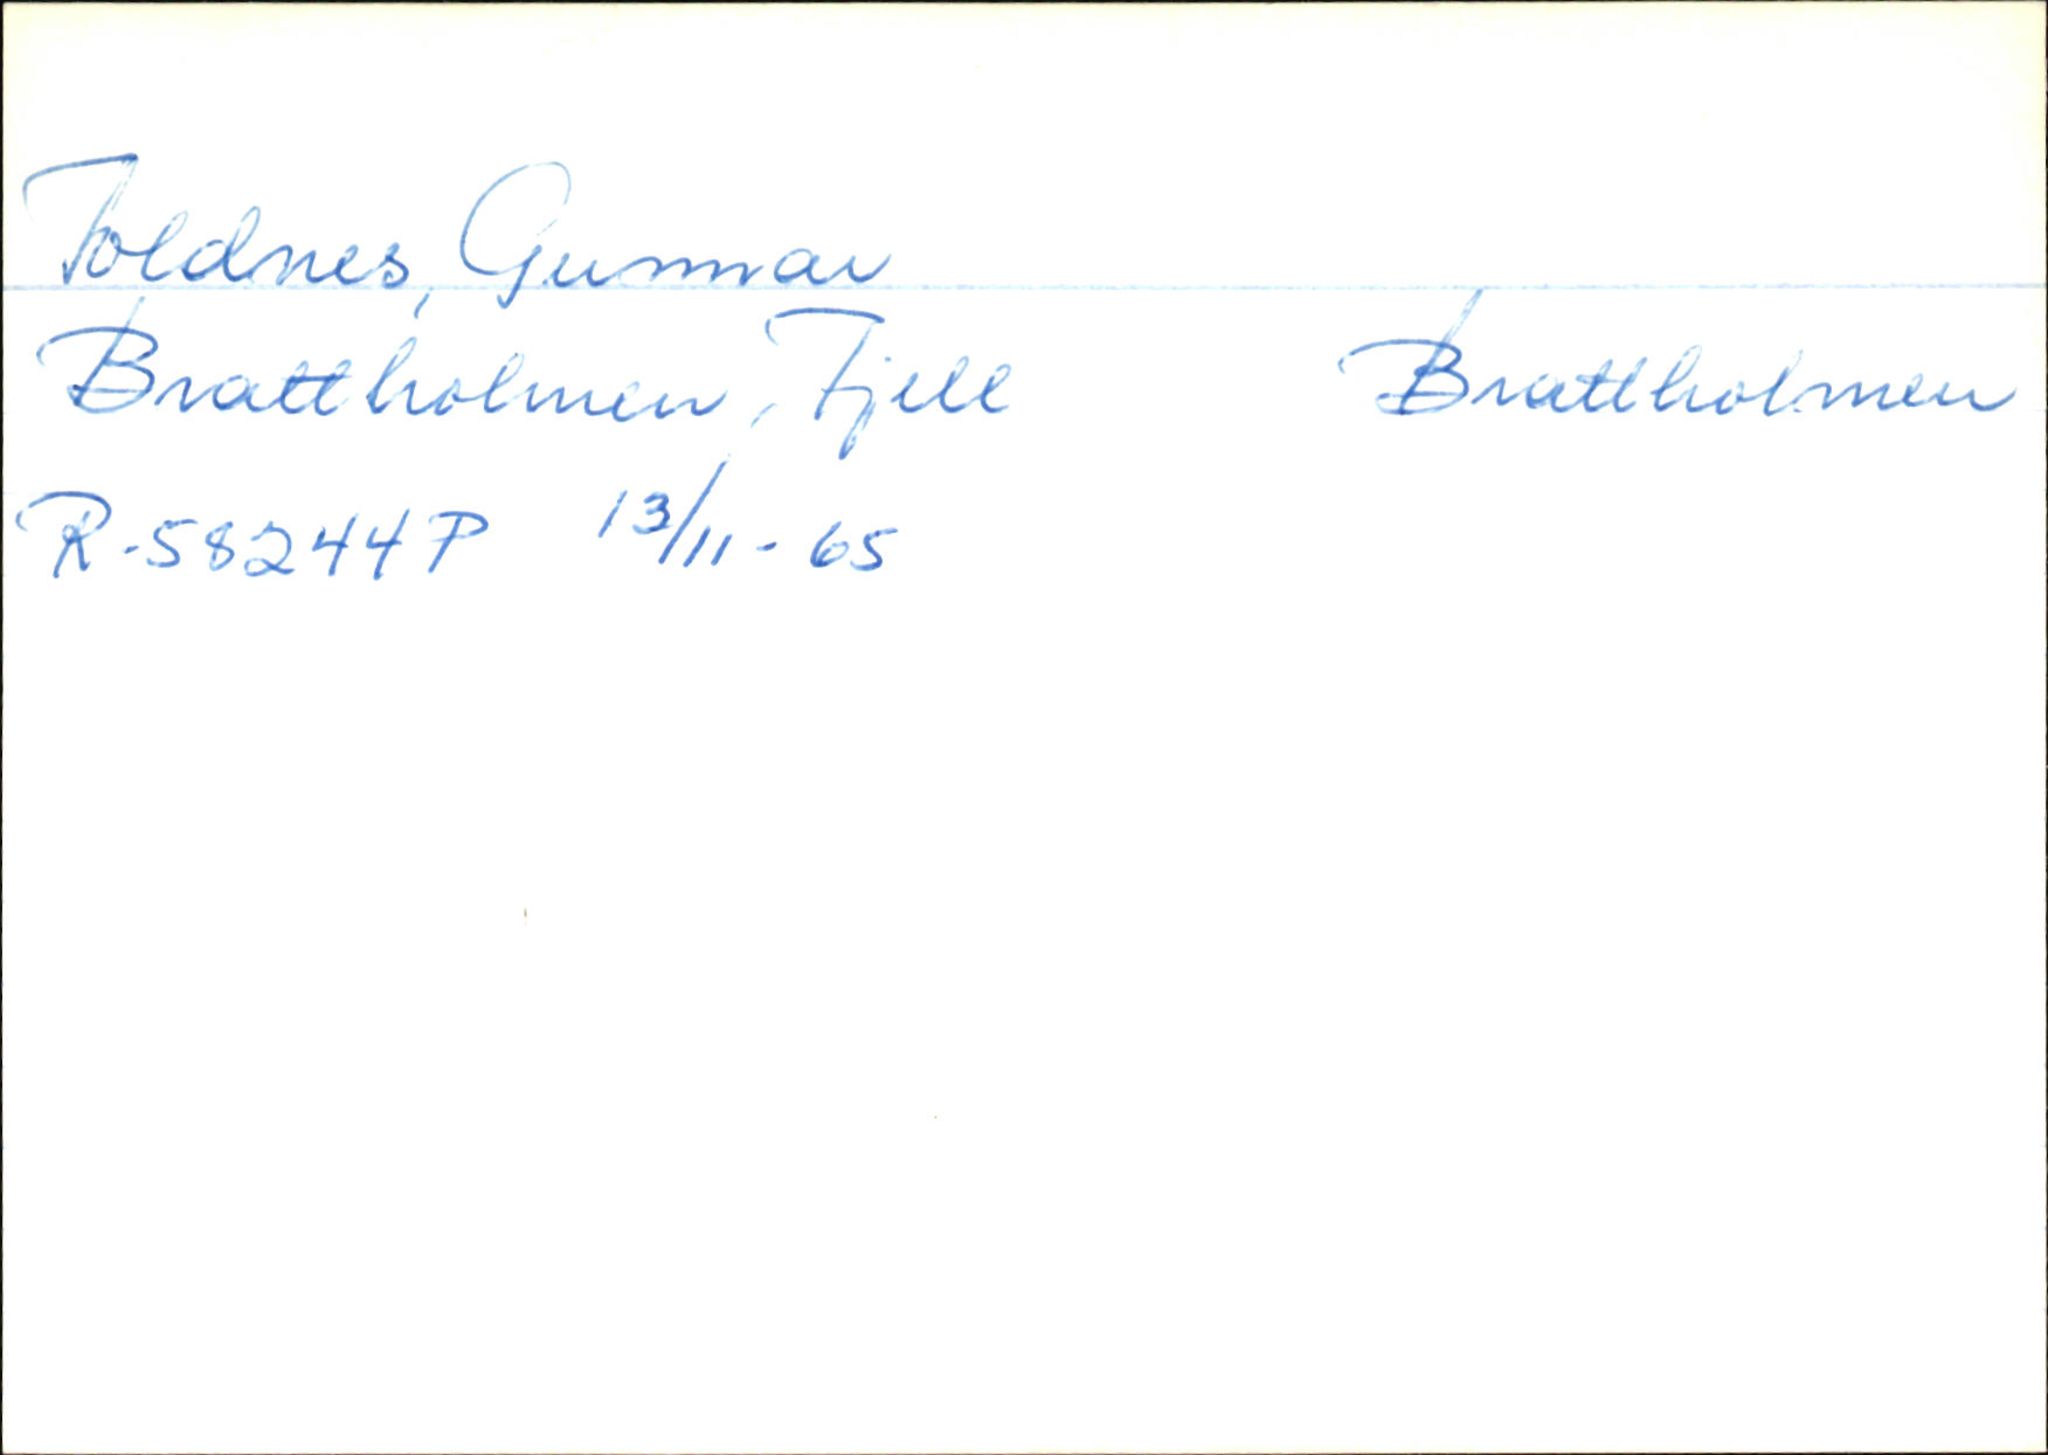 Toldnes, Gunnar
Brattholmen, Fjell Brattholmen
R-58244P 13/11-65